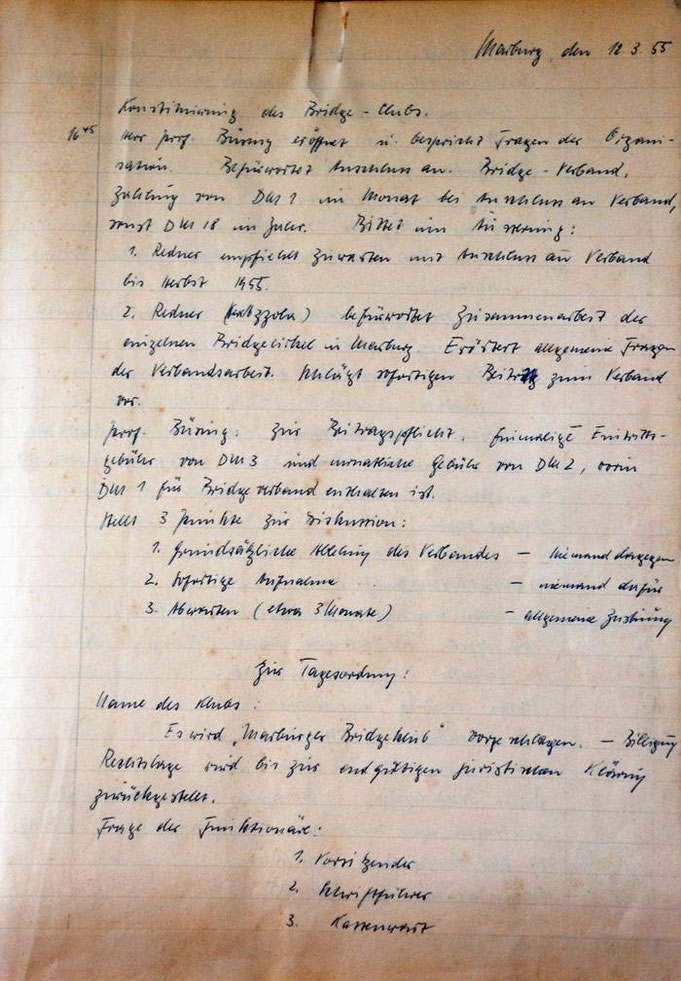 Marburg, den 12.3.55
Konstituierung des Bridge-Clubs.
16 45 Herr Prof. Büring eröffnet u. bespricht Fragen der Organi-
sation. Befürwortet Anschluss an Bridge-Verband,
Zahlung von DM 1 im Monat bei Anschluss an Verband,
sonst DM 18 im Jahr. Bittet um Äusserung:
1. Redner empfiehlt Zuwarten mit Anschluss an Verband
bis Herbst 1955.
2. Redner befürwortet Zusammenarbeit der
einzelnen Bridgezirkel in Marburg. Erörtert allgemeine Fragen
der Verbandsarbeit. Schlägt sofortigen zum Verband
vor.
Prof. Büring: Zur Beitragspflicht. Einmalige Eintritts-
gebühr von DM 3 und monatliche Gebühr von DM 2, worin
DM 1 für Bridgeverband enthalten ist.
Stellt 3 Punkte zur Diskussion:
1. Grundsätzliche des Verbandes – niemand dagegen
2. Sofortige Aufnahme – niemand dafür
3. Abwarten (etwa 3 Monate) – allgemeine Zustimmung
Zur Tagesordnung:
Name des Klubs:
Es wird „Marburger Bridgeklub" vorgeschlagen. – Billigung
Rechtslage wird bis zur endgültigen juristischen Klärung
zurückgestellt.
Frage der Funktionäre:
1. Vorsitzender
2. Schriftführer
3. Kassenwart